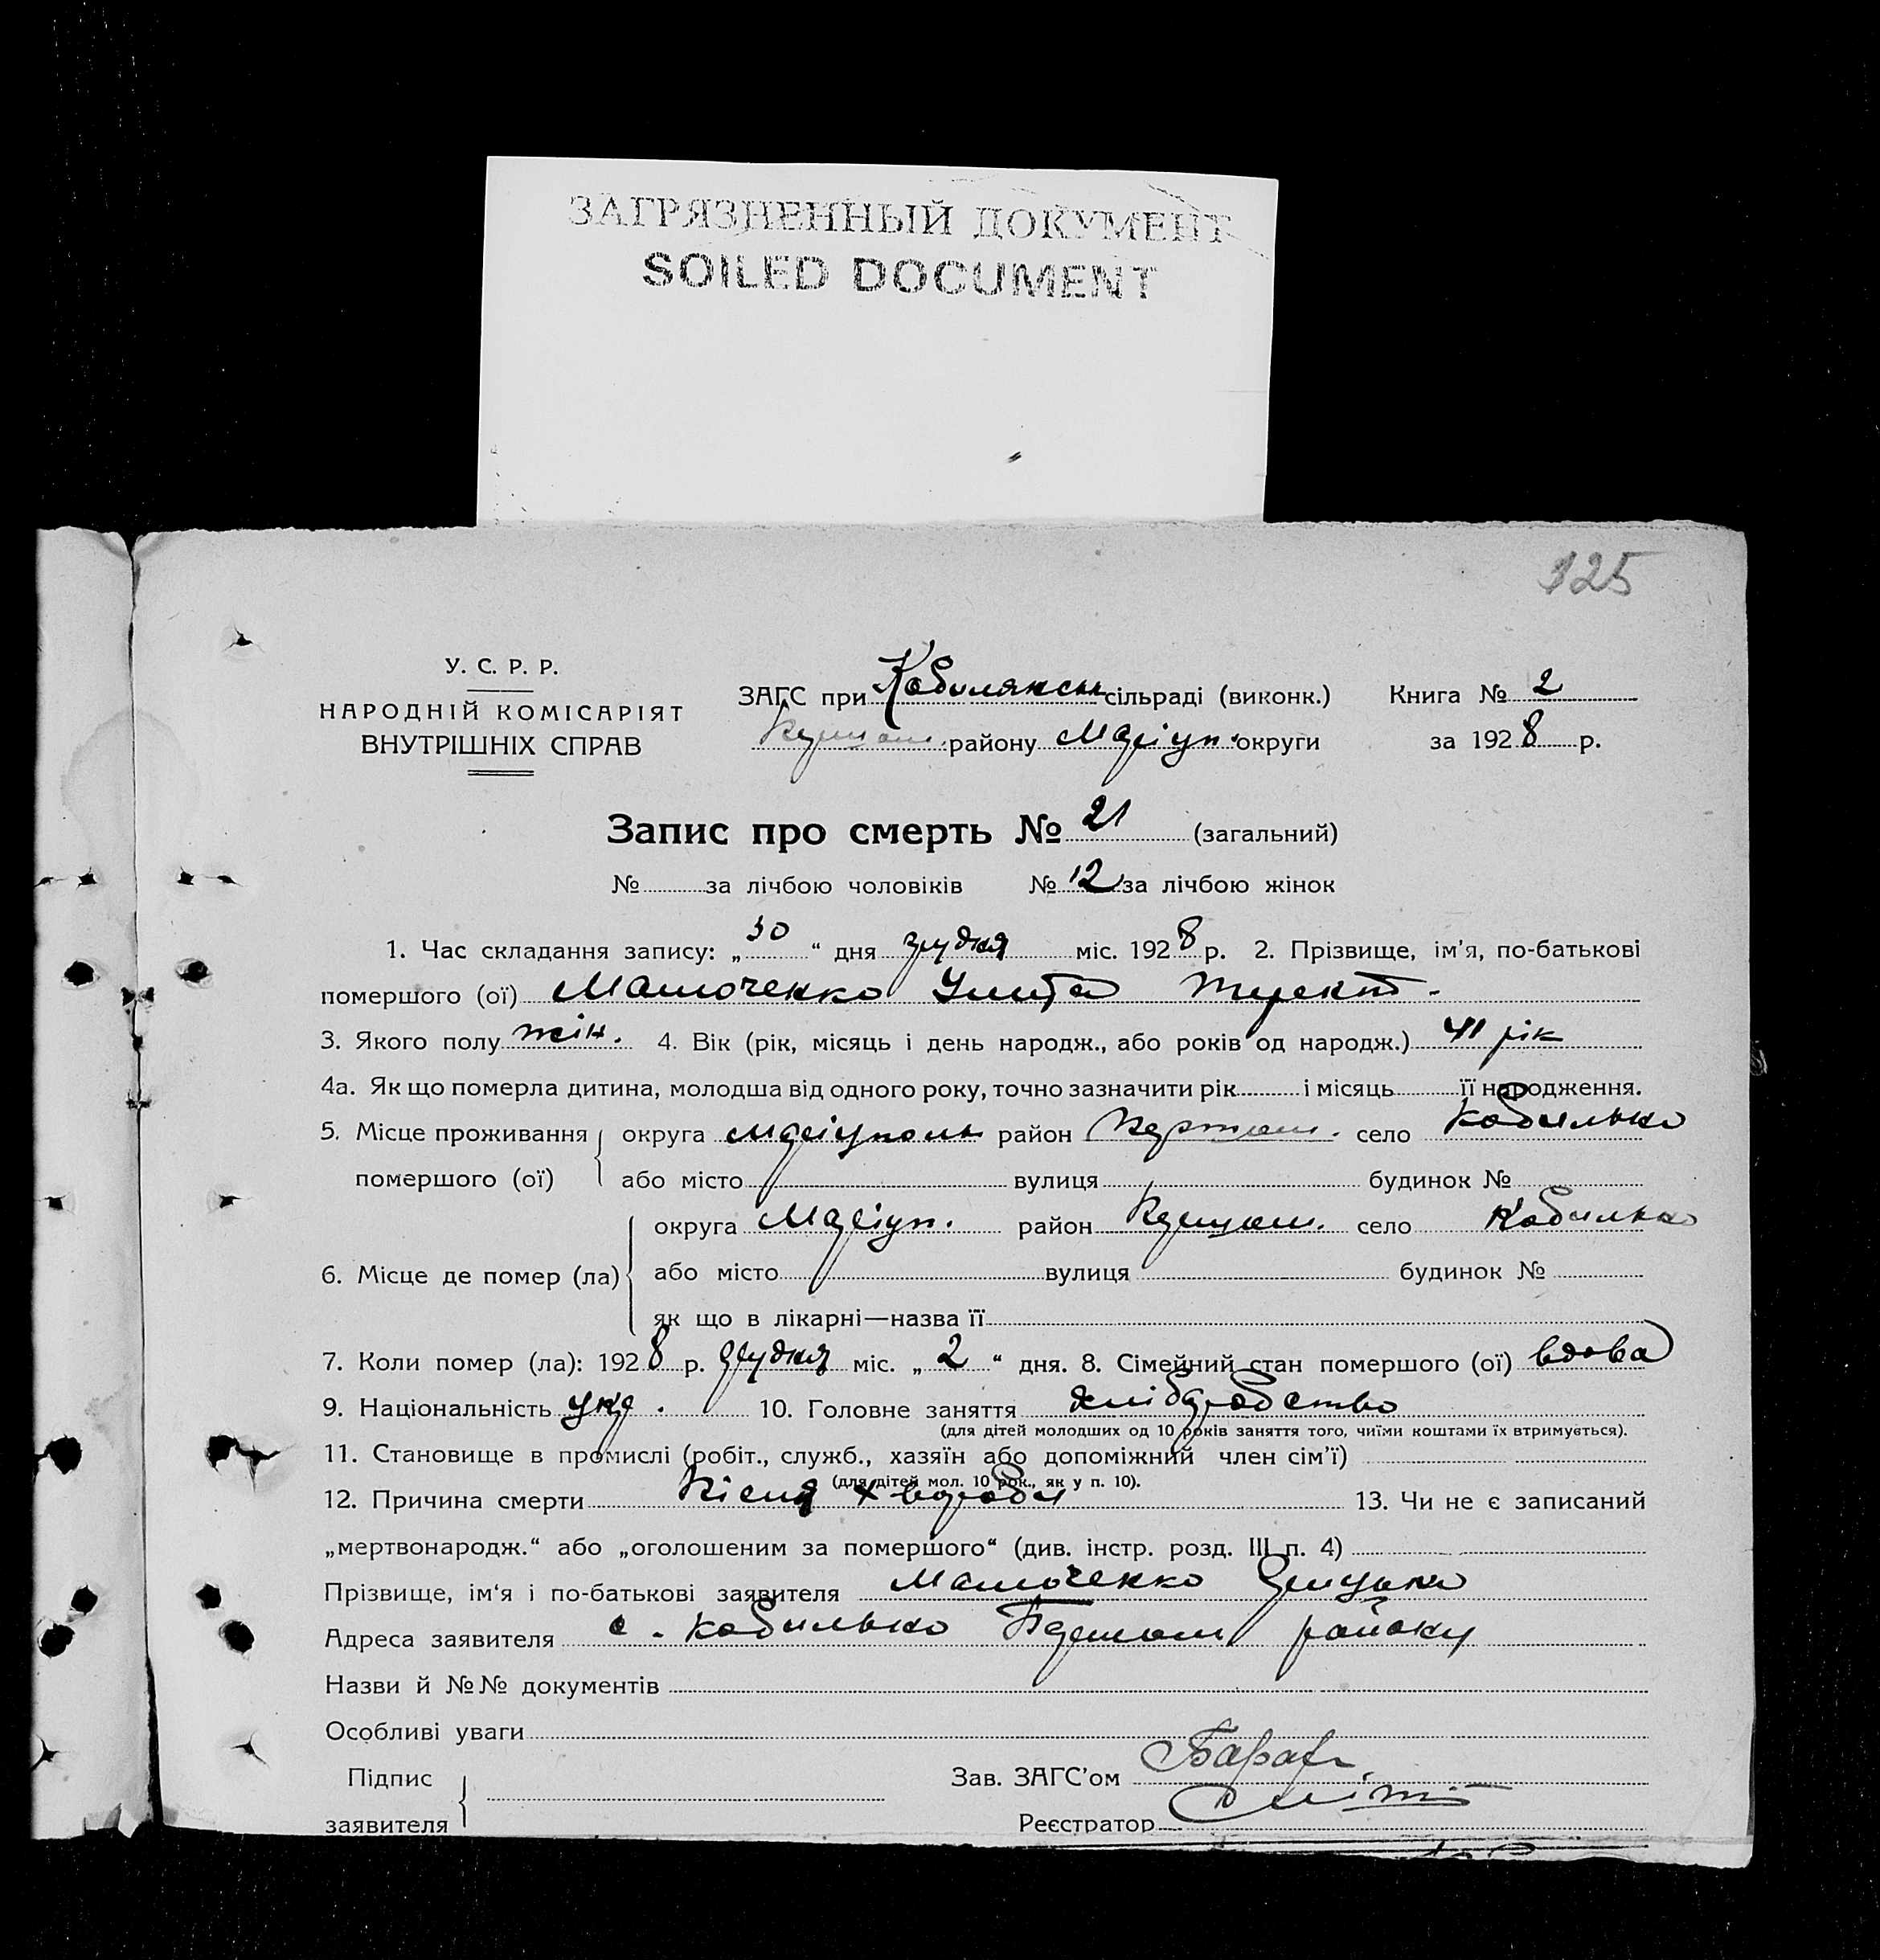 ЗАГРЯЗНЕННЫЙ ДОКУМЕНТ
SOILED DOCUMENT
325
У. С. Р. Р.
НАРОДНІЙ КОМІСАРІЯТ
ВНУТРІШНІХ СПРАВ
ЗАГС при Кобилякськ сільраді (виконк.) Книга № 2
району Маріуп. округи за 1928 р.
Запис про смерть № 21 (загальний)
№ за лічбою чоловіків № 12 за лічбою жінок
1. Час складання запису: „30“ дня грудня міс. 1928 р. 2. Прізвище, ім’я, по-батькові
помершого (ої)
3. Якого полу жін. 4. Вік (рік, місяць і день народж., або років од народж.) 41 рік
4а. Як що померла дитина, молодша від одного року, точно зазначити рік і місяць її народження.
5. Місце проживання округа Маріуполь район село Кобилько
помершого (ої) або місто вулиця будинок №
округа Маріуп. район село Кобилько
6. Місце де помер (ла) або місто вулиця будинок №
як що в лікарні—назва її
7. Коли помер (ла): 1928 р. грудня міс. „2“ дня. 8. Сімейний стан помершого (ої) вдова
9. Національність укр. 10. Головне заняття хліборобство
(для дітей молодших од 10 років заняття того, чиїми коштами їх втримується).
11. Становище в промислі (робіт., служб., хазяїн або допоміжний член сім’ї)
(для дітей мол. 10 рок., як у п. 10).
12. Причина смерти 13. Чи не є записаний
„мертвонародж.“ або „оголошеним за помершого“ (див. інстр. розд. III п. 4)
Прізвище, ім‘я і по-батькові заявителя
Адреса заявителя с. Кобилько району
Назви й №№ документів
Особливі уваги
Підпис Зав. ЗАГС’ом
заявителя Реєстратор